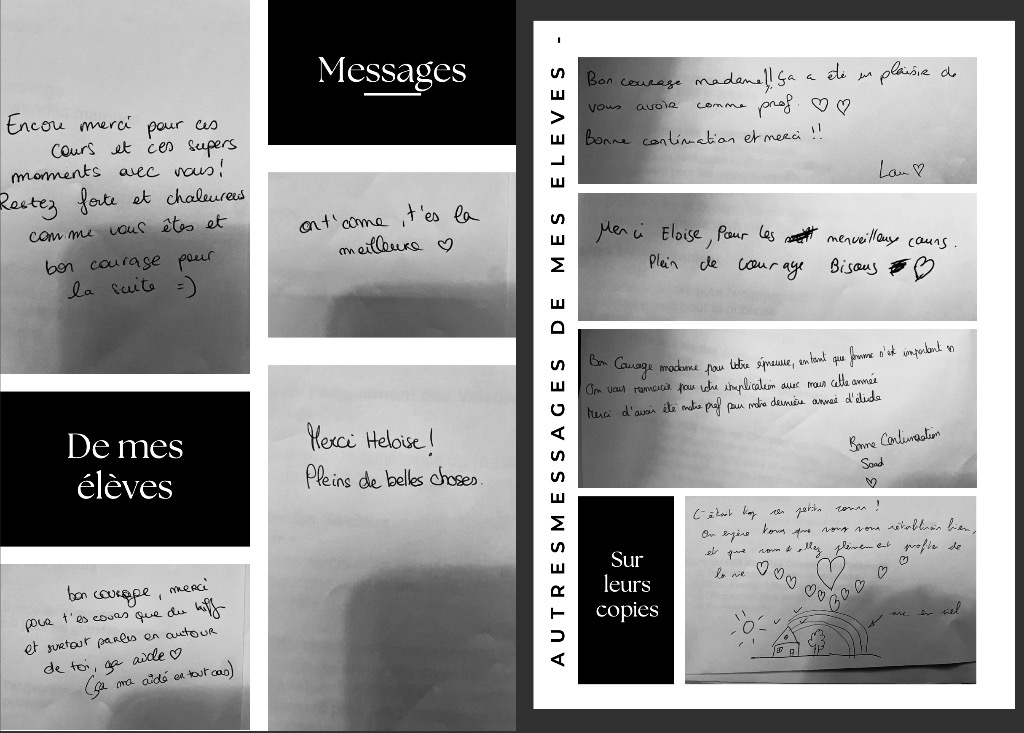 Encore merci pour ces
cours et ces supers
moments avec vous !
Restez forte et chaleureuse
comme vous êtes et
bon courage pour
la suite =)
Messages
on t'aime, t'es la
meilleure ♡
De mes
élèves
Merci Heloise !
Pleins de belles choses.
bon courage, merci
pour t'es cours que du kiff
et surtout parles en autour
de toi, ça aide ♡
(ça ma aidé en tout cas)
AUTRESMESSAGES DE MES ELEVES -
Bon courage madame!! Ça a été un plaisir de
vous avoir comme prof. ♡ ♡
Bonne continuation et merci !!
Lou ♡
Merci Eloïse, Pour les merveilleux cours.
Plein de courage Bisous ♡
Bon Courage madame pour votre épreuve, en tant que femme c'est important
On vous remercie pour votre implication avec nous cette année
Merci d'avoir été notre pref pour notre dernière année d'étude
Bonne Continuation
♡
Sur
leurs
copies
C'était trop ces petits cours !
On espère tous que vous vous rétablirez bien,
et que vous allez pleinement profiter de
la vie ♡
arc en ciel